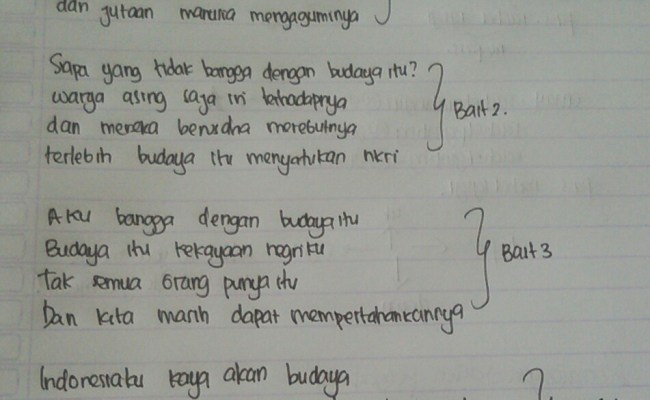 dan jutaan manusia mengaguminya
Siapa yang tidak bangga dengan budaya itu?
warga asing saja iri terhadapnya
dan mereka berusaha merebutnya
terlebih budaya itu menyatukan nkri
Bait 2.
Aku bangga dengan budaya itu
Budaya itu kekayaan negriku
Tak semua orang punya itu
Dan kita masih dapat mempertahankannya
Bait 3
Indonesiaku kaya akan budaya